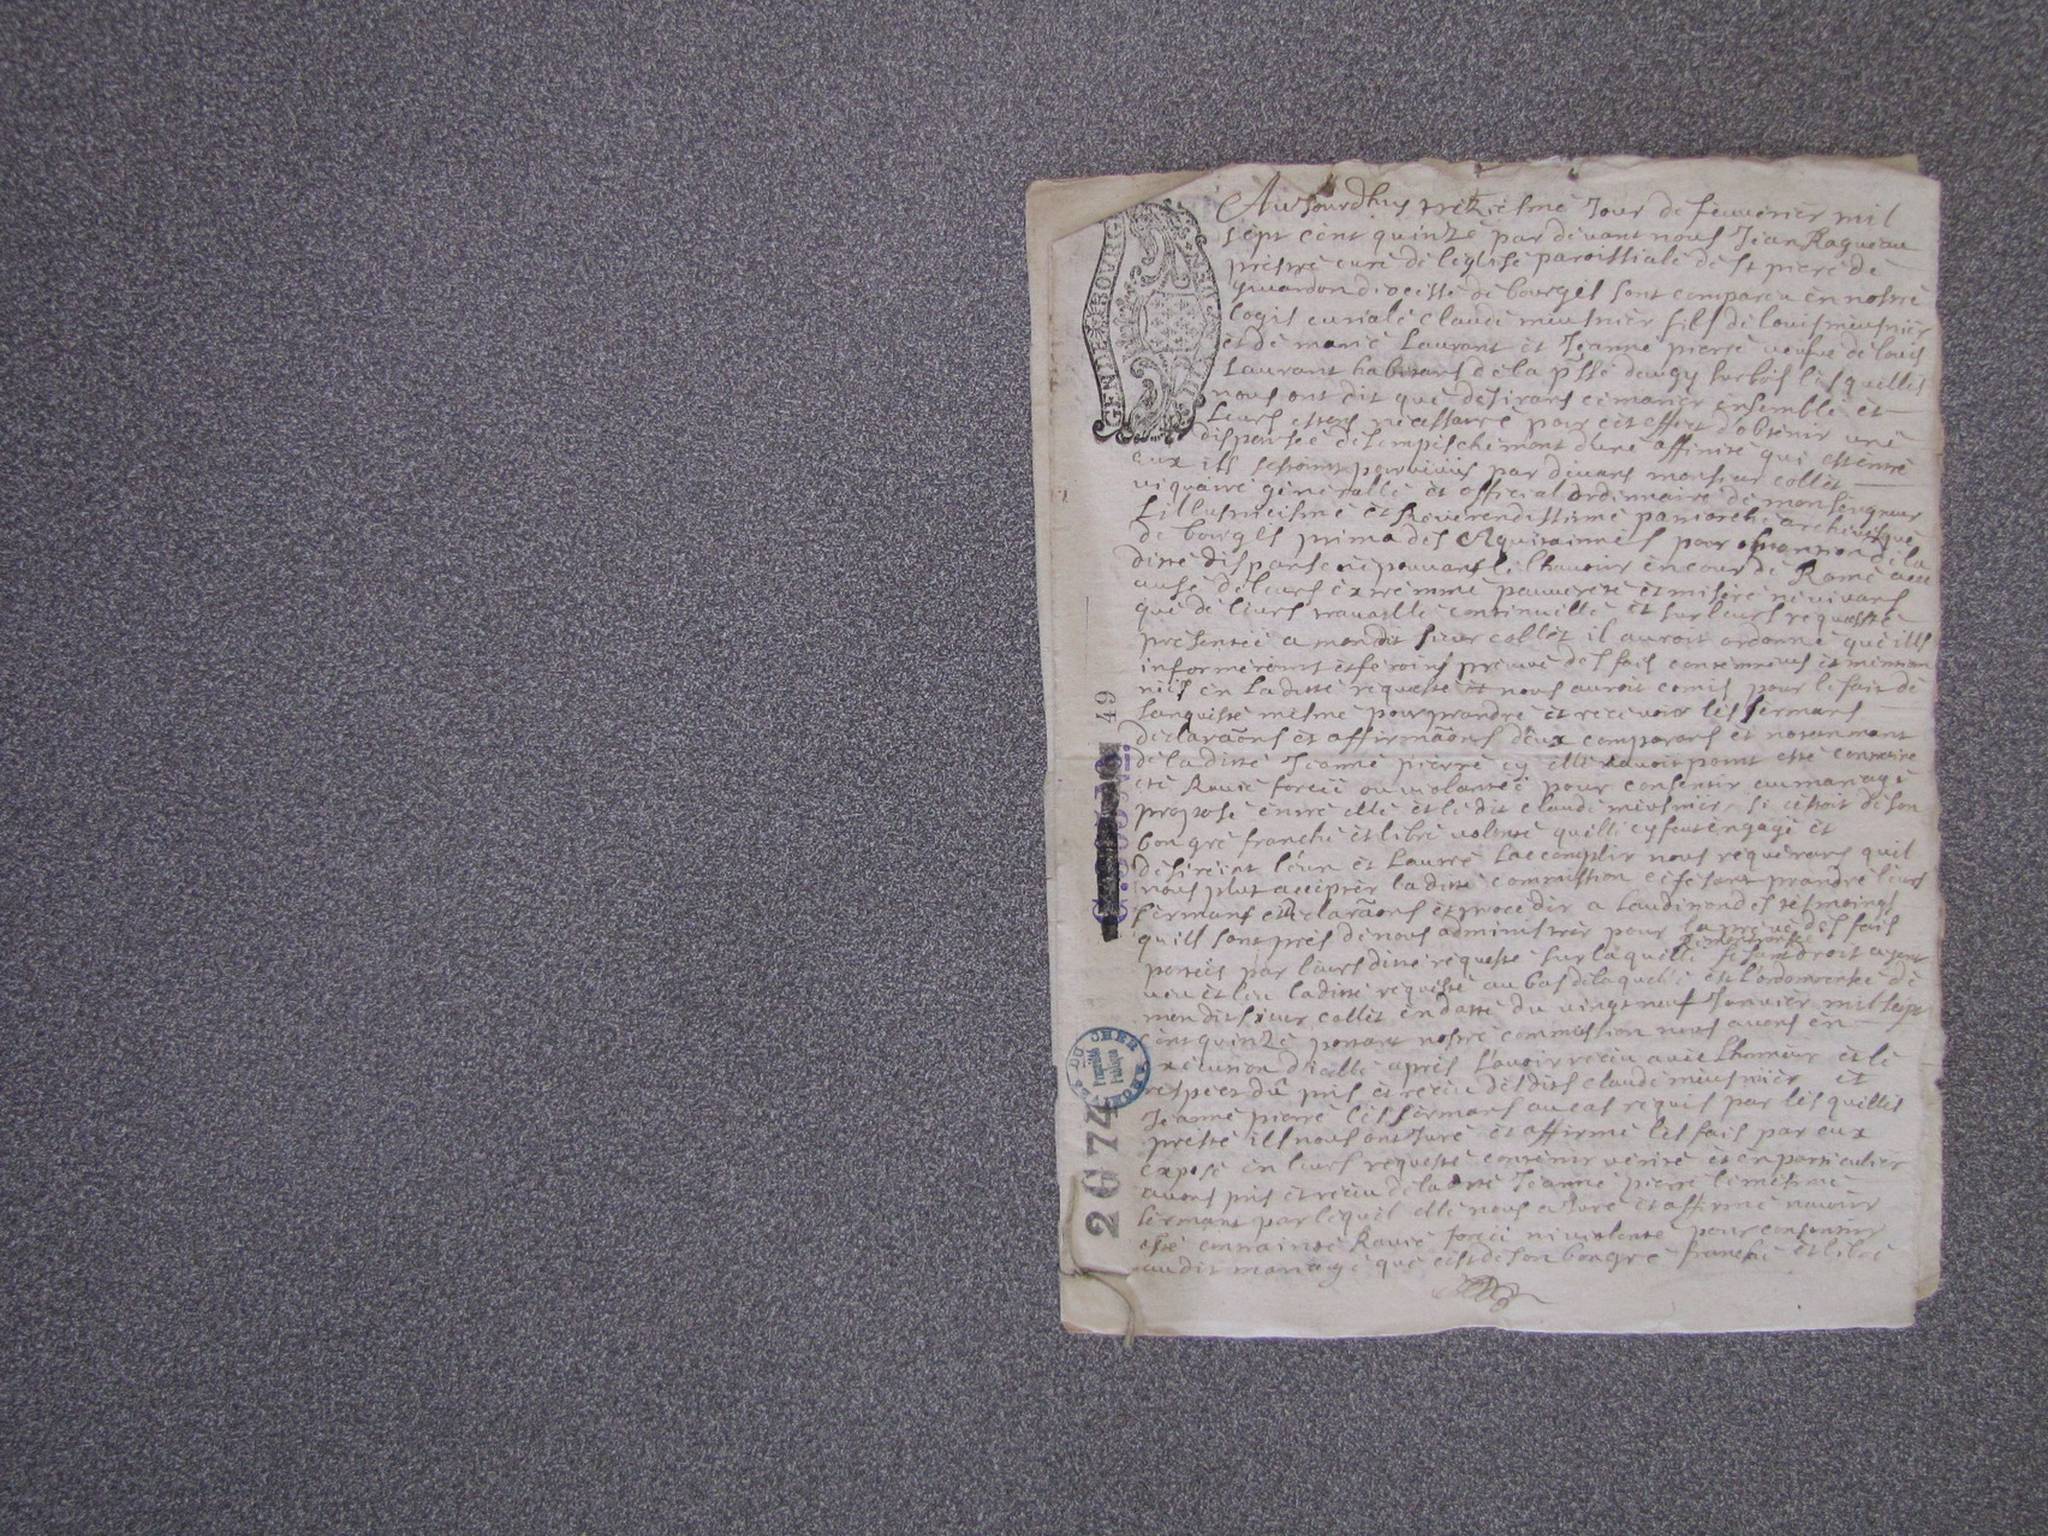 Aujourdhuy treziesme Jour de feuvrier mil
sept cent quinze par devant nous Jean Ragueau
prestre curé de leglise paroissialle de st piere de
diocesse de bourges sont comparu en nostre
logis curiale claude meusnier fils de louis meusnier
et de marie Laurant et Jeanne pierre veufve de louis
Laurant habitans de la psse lesquelles
nous ont dit que desirans ce marier ensemble et
necessaire pour cet effect dobtenir une
dispansse de lempeschement dune affinité qui est entre
eux ils par devans monsieur collet
viquaire generalle et official ordinnaire de monseigneur
Lillustreisme et Reverendissime patriarche archevesque
de bourges prima des Aquitainnes pour obtantion de la
ditte dispanse ne pouvant le lhavoir en cour de Rome
ause de leurs extremme pauvreté et misere ne vivans
que de leurs travaille continuelle et sur leurs requeste
presentée a mondit sieur collet il auroit ordonné que ills
informeroint et feroint preuve des fais contenneus et mention
nées en la ditte requeste et nous auroit comis pour le fait de
lenquiste mesme pour prandre et recevoir les sermans
declaraons et affirmaons deux comparans et notanmant
de la ditte Jeanne pierre sy elle navoit point esté contraire
eté Ravie forcée ou violantée pour consentir au mariage
proposé entre elle et le dit claude meusnier si cestoit de son
bon gré franche et libre volonté quelle cy feut engagé et
desireint leun et Lautre Laccomplir nous requerans quil
nous plut accepter la ditte commission ce fesant prandre leurs
sermans et declaraons et procedir a Laudition des tesmoings
quills sont pres de nous administrer pour la preuve des fais
portées par leurs ditte requeste sur laquelle fesant droit ayant
veu et leu laditte requeste au bas de laquelle est lordonnence de
mondit sieur collet en datte du vingt neuf Janvier mil sept
cent quinze portant nostre commission nous avons en
execution dicelle apres Lavoir receu avec Lhonneur et le
respect dû pris et receu desdits claude meusnier et
Jeanne pierre les sermans au cas requis par lesquelles
presté ils nous ont Juré et affirmé les fais par eux
exposé en leurs requeste contenir verité et en particulier
avons pris et receu de laditte Jeanne pierre le mesme
sermant par lequel elle nous a Juré et affirmé navoir
esté contrainte Ravie forcée ni violanté pour consentir
audit mariage que cest de son bon gré franche et libre
GEN DE BOURG
49
ARCHIVES DU CHER
Propriété
Publique
2G 74